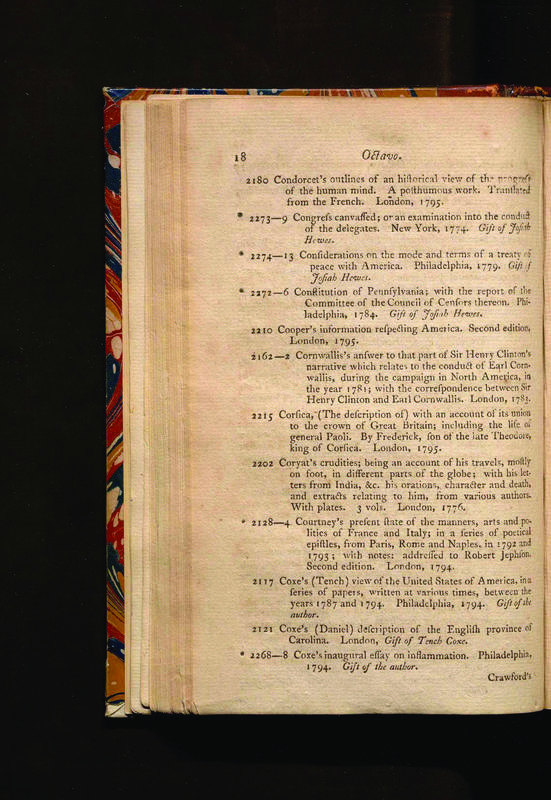 18 Octavo.
2180 Condorcet's outlines of an hiſtorical view of the progreſs
of the human mind. A poſthumous work. Tranſlated
from the French. London, 1795.
* 2273—9 Congreſs canvaſſed; or an examination into the conduct
of the delegates. New York, 1774. Gift of Joſiah
Hewes.
* 2274—13 Conſiderations on the mode and terms of a treaty of
peace with America. Philadelphia, 1779. Gift of
Joſiah Hewes.
* 2272—6 Conſtitution of Pennſylvania; with the report of the
Committee of the Council of Cenſors thereon. Phi-
ladelphia, 1784. Gift of Joſiah Hewes.
2210 Cooper's information reſpecting America. Second edition,
London, 1795.
2162—2 Cornwallis's anſwer to that part of Sir Henry Clinton's
narrative which relates to the conduct of Earl Corn-
wallis, during the campaign in North America, in
the year 1781; with the correſpondence between Sir
Henry Clinton and Earl Cornwallis. London, 1783.
2215 Corſica, (The deſcription of) with an account of its union
to the crown of Great Britain; including the life of
general Paoli. By Frederick, ſon of the late Theodore,
king of Corſica. London, 1795.
2202 Coryat's crudities; being an account of his travels, moſtly
on foot, in different parts of the globe; with his let-
ters from India, &c. his orations, character and death,
and extracts relating to him, from various authors.
With plates. 3 vols. London, 1776.
* 2128—4 Courtney's preſent ſtate of the manners, arts and po-
litics of France and Italy; in a ſeries of poetical
epiſtles, from Paris, Rome and Naples, in 1792 and
1793; with notes: addreſſed to Robert Jephſon.
Second edition. London, 1794.
2117 Coxe's (Tench) view of the United States of America, in a
ſeries of papers, written at various times, between the
years 1787 and 1794. Philadelphia, 1794. Gift of the
author.
2121 Coxe's (Daniel) deſcription of the Engliſh province of
Carolina. London, Gift of Tench Coxe.
* 2268—8 Coxe's inaugural eſſay on inflammation. Philadelphia,
1794. Gift of the author.
Crawford's